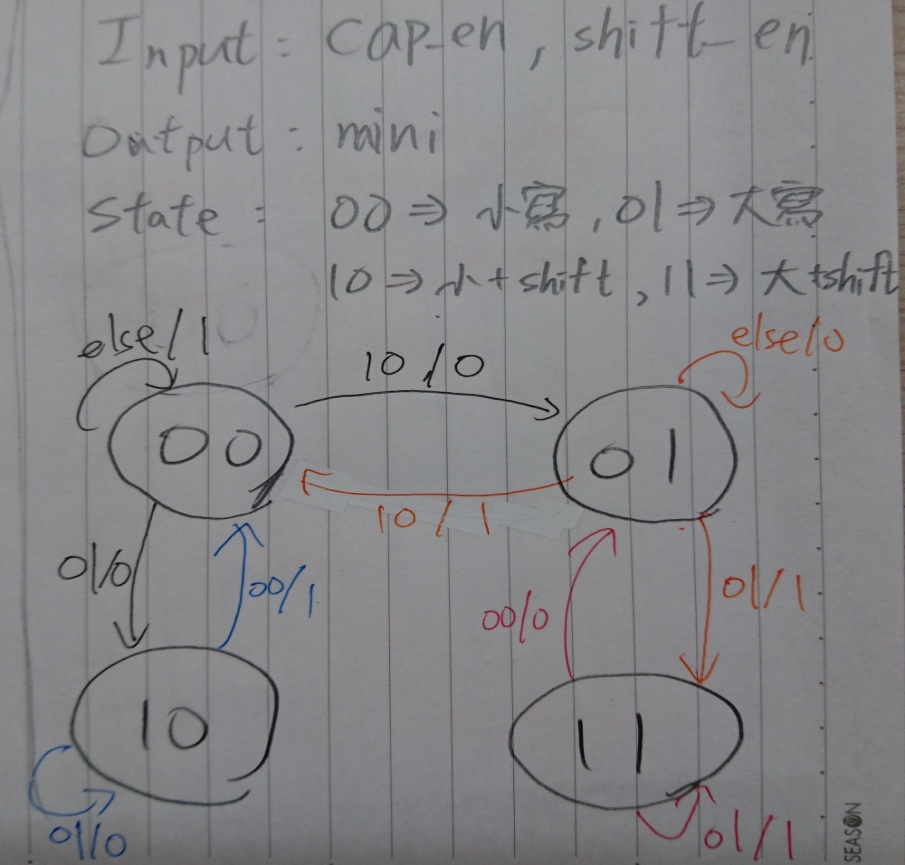 Input : cap-en , shift-en
Output : mini
State : 00 ⇒ 小寫 , 01 ⇒ 大寫
10 ⇒ 小 + shift , 11 ⇒ 大 + shift
else/1
10/0
else/0
00
01
10/1
01/0
00/1
00/0
01/1
10
11
01/0
01/1
SEASON